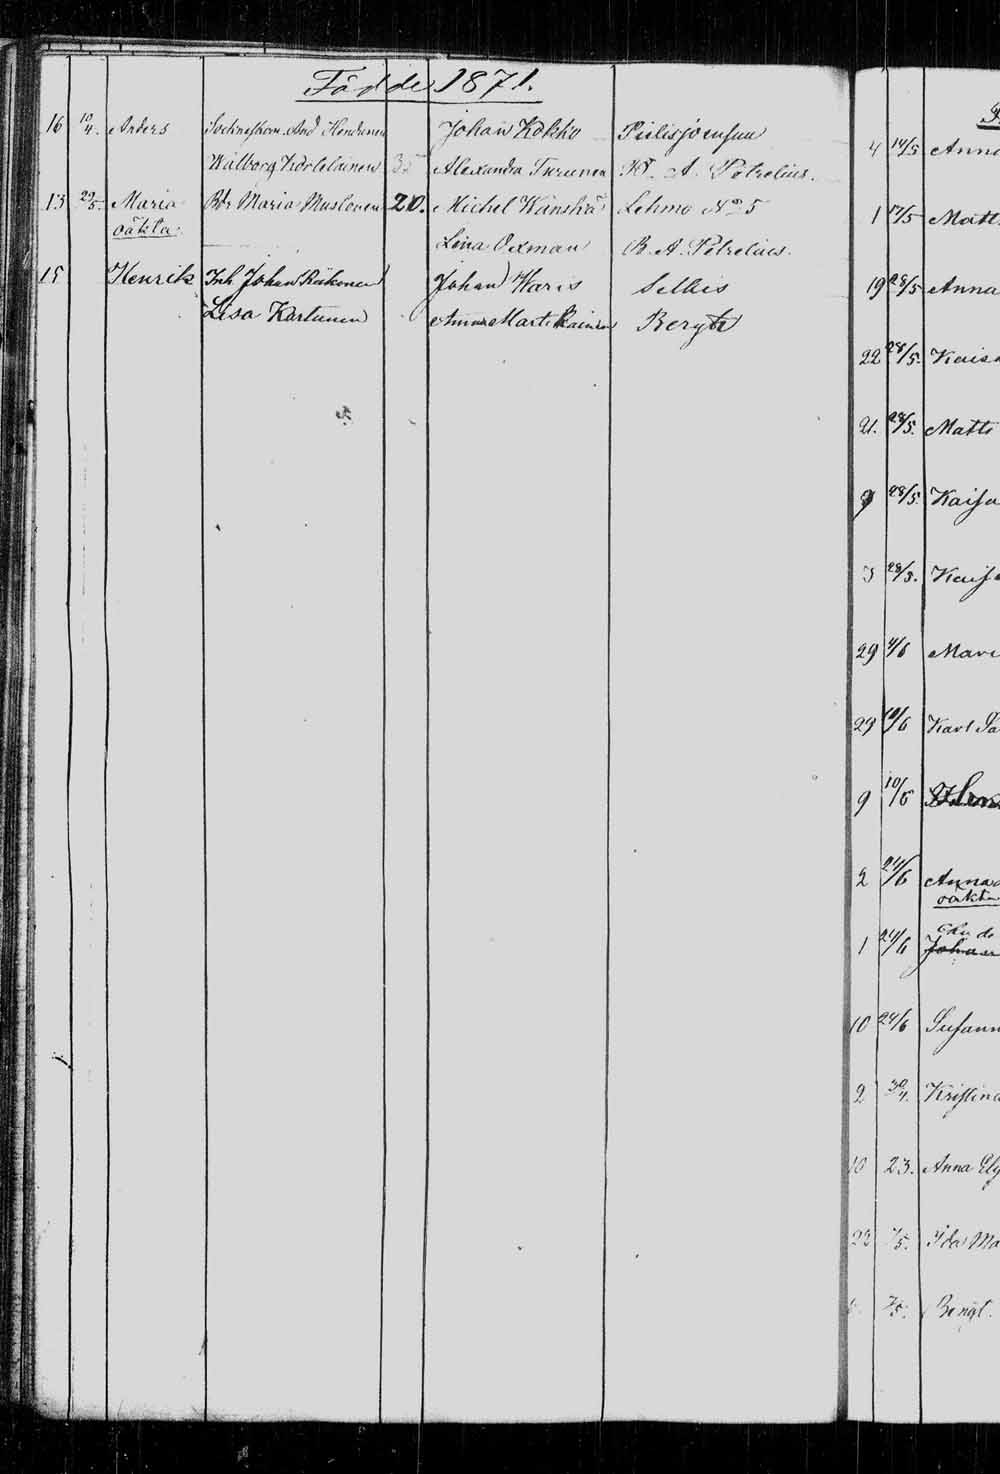 Födde 1871.
16 10/4. Anders Sockneskom. And Hendunen Johan Kokko Pielisjoensuu
Walborg Karlelainen 35 Alexandra Turunen A. Petrelius.
13 29/5. Maria Bdr Maria Musloven 20. Michel Känskä Lehmo No 5
oäkta Lena Oxman B. A. Petrelius.
15 Henrik Inh Johan Räikönen Johan Waris Selkis
Lisa Kortunen Anna Martikainen Bergtr
4 14/5 Anna
1 17/5 Matt
19 28/5 Anna
22 28/5. Kaisa
21. 28/5. Matts
9 28/5 Kaisa
3 28/5. Kaisa
29 4/6 Mari
29 10/6 Karl
9 10/6
2 24/6 Anna
oäkta
1 24/6 Johan
10 24/6 Susann
2 30/4. Kristina
10 23. Anna El
23 7/5. Ida Ma
7/5. Bengt.